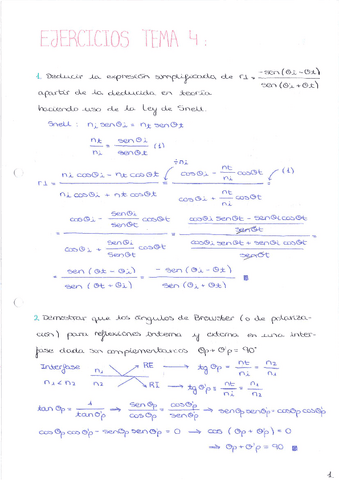 EJERCICIOS TEMA 4:
1. Deducir la expresión simplificada de r⊥ = -sen(θi-θt) / sen(θi+θt)
apartir de la deducida en teoría
haciendo uso de la Ley de Snell.
Snell: ni senθi = nt senθt
nt/ni = senθi/senθt (1)
÷ni
r⊥ = (ni cosθi - nt cosθt) / (ni cosθi + nt cosθt) = (cosθi - nt/ni cosθt) / (cosθi + nt/ni cosθt) (1)
= (cosθi - senθi/senθt cosθt) / (cosθi + senθi/senθt cosθt) = ((cosθi senθt - senθi cosθt)/senθt) / ((cosθi senθt + senθi cosθt)/senθt)
= sen(θt - θi) / sen(θt + θi) = - sen(θi - θt) / sen(θi + θt)
2. Demostrar que los ángulos de Brewster (o de polariza-
ción) para reflexiones interna y externa en una inter-
fase dada son complementarios θp + θ'p = 90°
Interfase n1 → RE → tg θp = nt/ni = n2/n1
n1 < n2 n2 → RI → tg θ'p = nt/ni = n1/n2
tan θp = 1/tan θ'p → senθp/cosθp = cosθ'p/senθ'p → senθp senθ'p = cosθp cosθ'p
cosθp cosθ'p - senθp senθ'p = 0 → cos(θp + θ'p) = 0
→ θp + θ'p = 90
1.